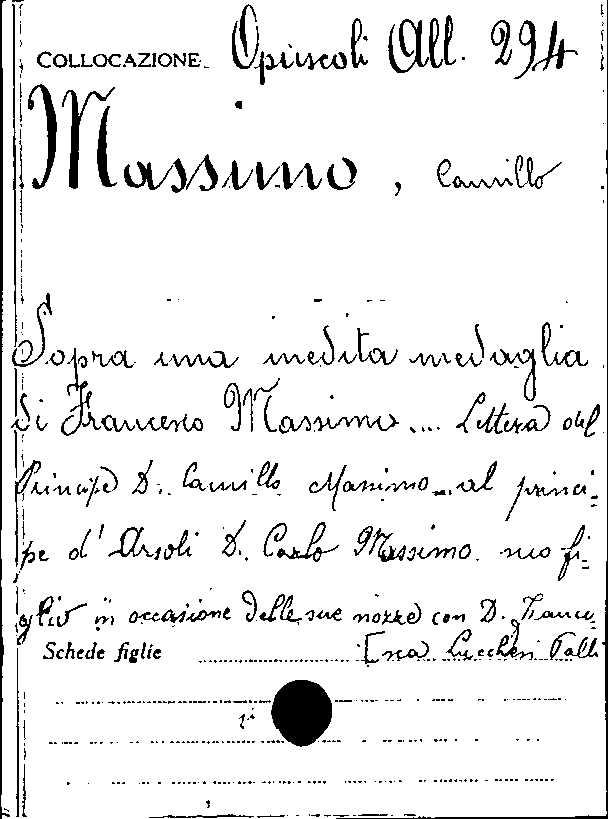 COLLOCAZIONE Opuscoli All. 294
Massimo, Camillo
Sopra una inedita medaglia
di Francesco Massimo.... Lettera del
Principe D. Camillo Massimo...al princi-
pe d'Arsoli D. Carlo Massimo suo fi-
glio in occasione delle sue nozze con D. France-
Schede figlie [sca Luccheri Palli